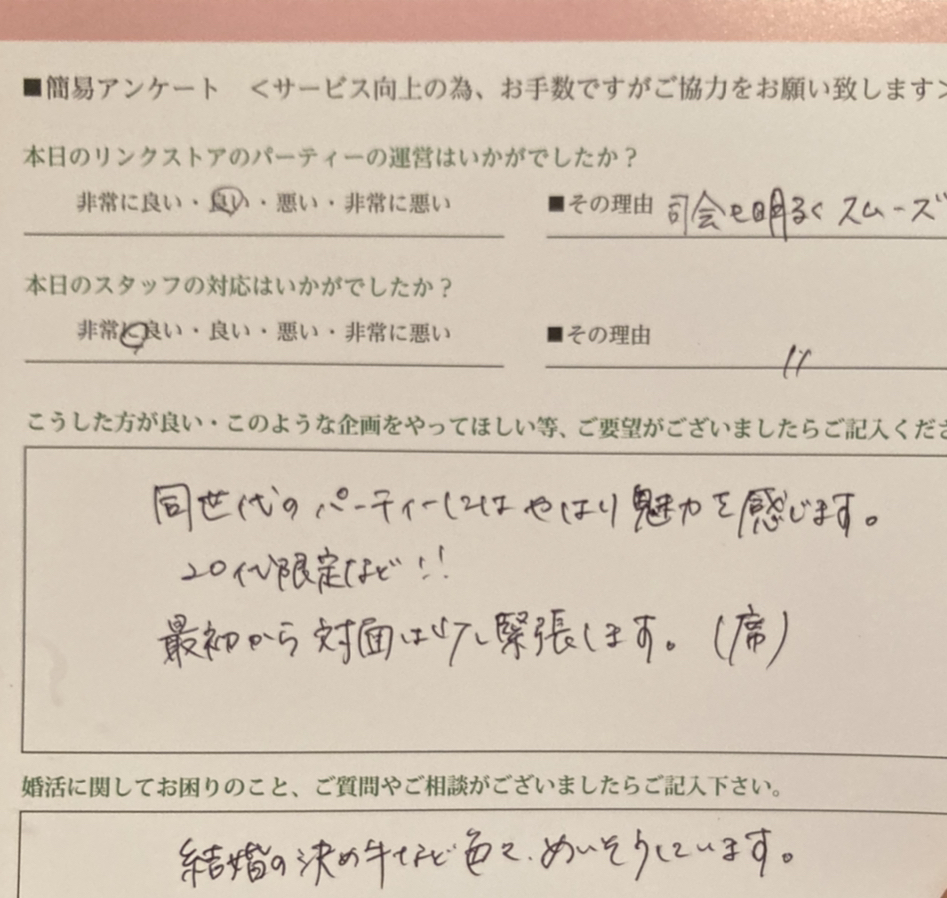 ■簡易アンケート <サービス向上の為、お手数ですがご協力をお願い致します>
本日のリンクストアのパーティーの運営はいかがでしたか？
非常に良い・良い・悪い・非常に悪い ■その理由 司会も明るくスムーズ
本日のスタッフの対応はいかがでしたか？
非常に良い・良い・悪い・非常に悪い ■その理由 〃
こうした方が良い・このような企画をやってほしい等、ご要望がございましたらご記入くださ
同世代のパーティーにはやはり魅力を感じます。
20代限定など!!
最初から対面は少し緊張します。(席)
婚活に関してお困りのこと、ご質問やご相談がございましたらご記入下さい。
結婚の決め手など色々、めいそうしています。